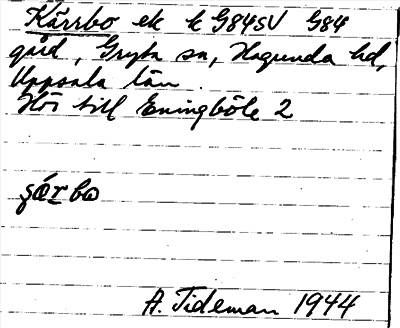 Kärrbo ek k G84SV G84
gård, Gryta sn, Hagunda hd,
Uppsala län.
Hör till Eningböle 2
çǽrbo
A. Tideman 1944